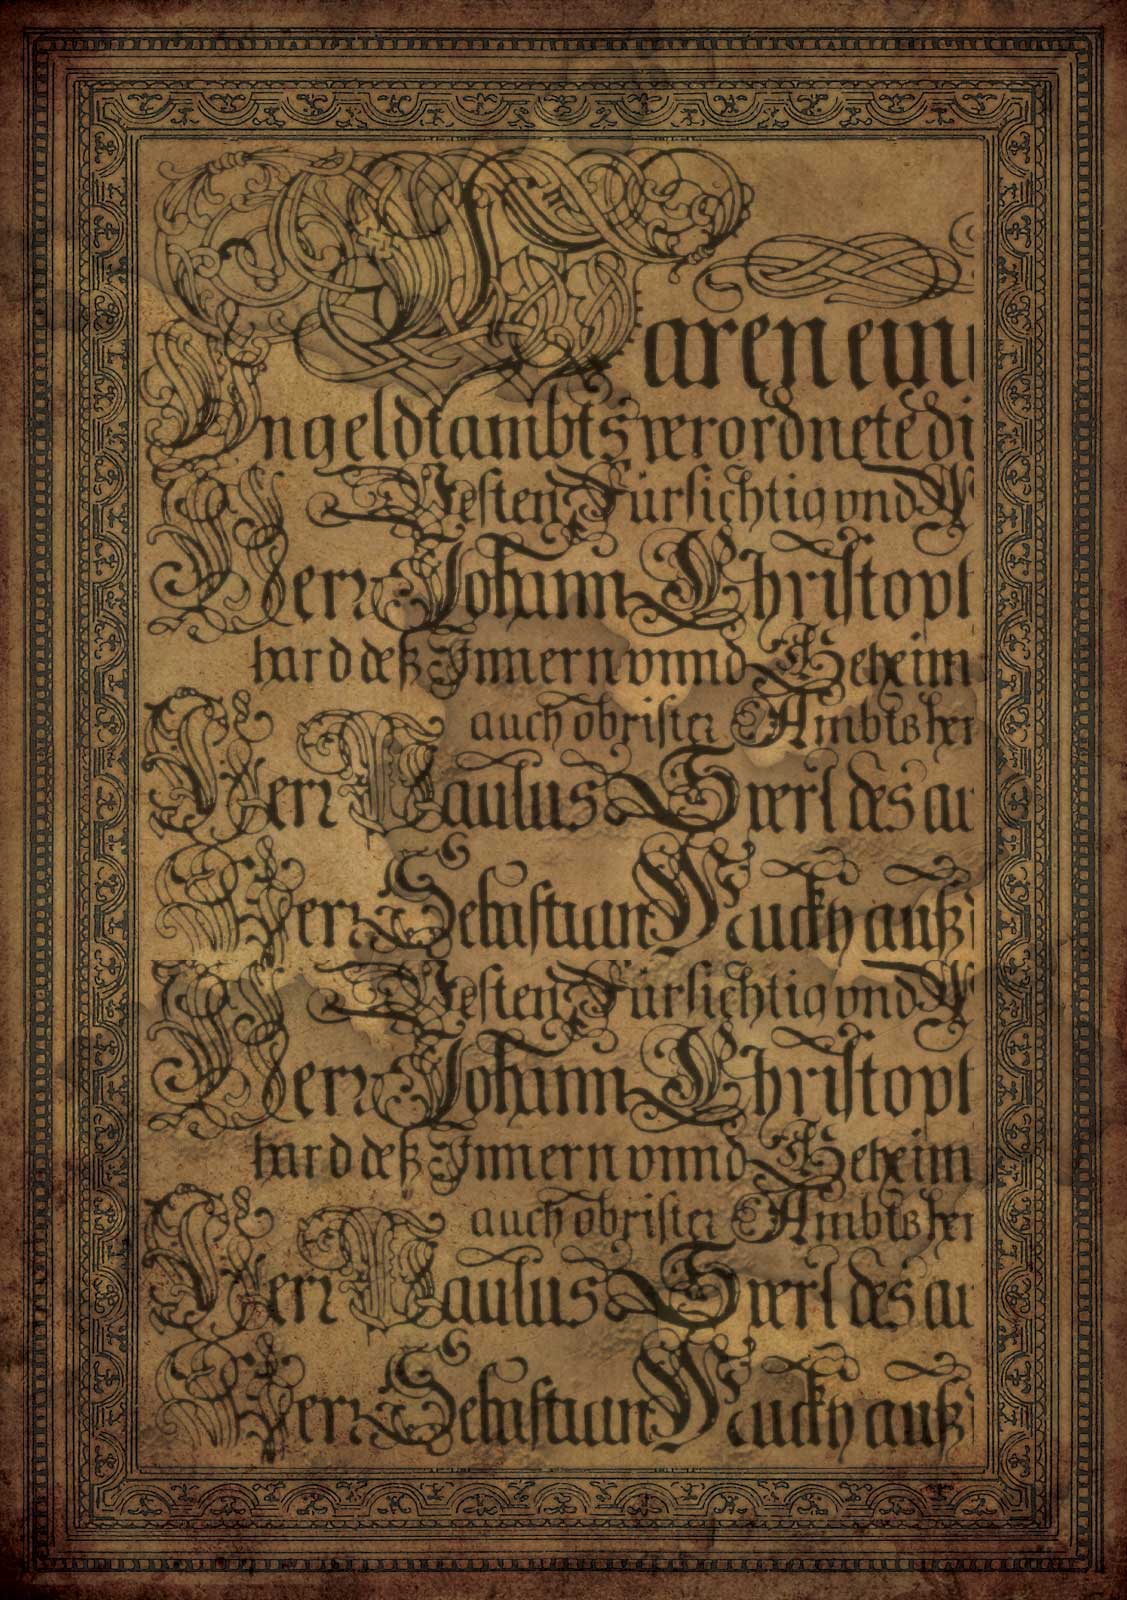 Waren euu
Ungeldtambts verordnete di
Vesten Fürsichtig vnd W
Herr Johann Christoph
hard deß Innern vnnd Geheim
auch obrister Ambtsher
Herr Paulus des au
Herr Sebastian auß
Vesten Fürsichtig vnd W
Herr Johann Christoph
hard deß Innern vnnd Geheim
auch obrister Ambtsher
Herr Paulus des au
Herr Sebastian auß